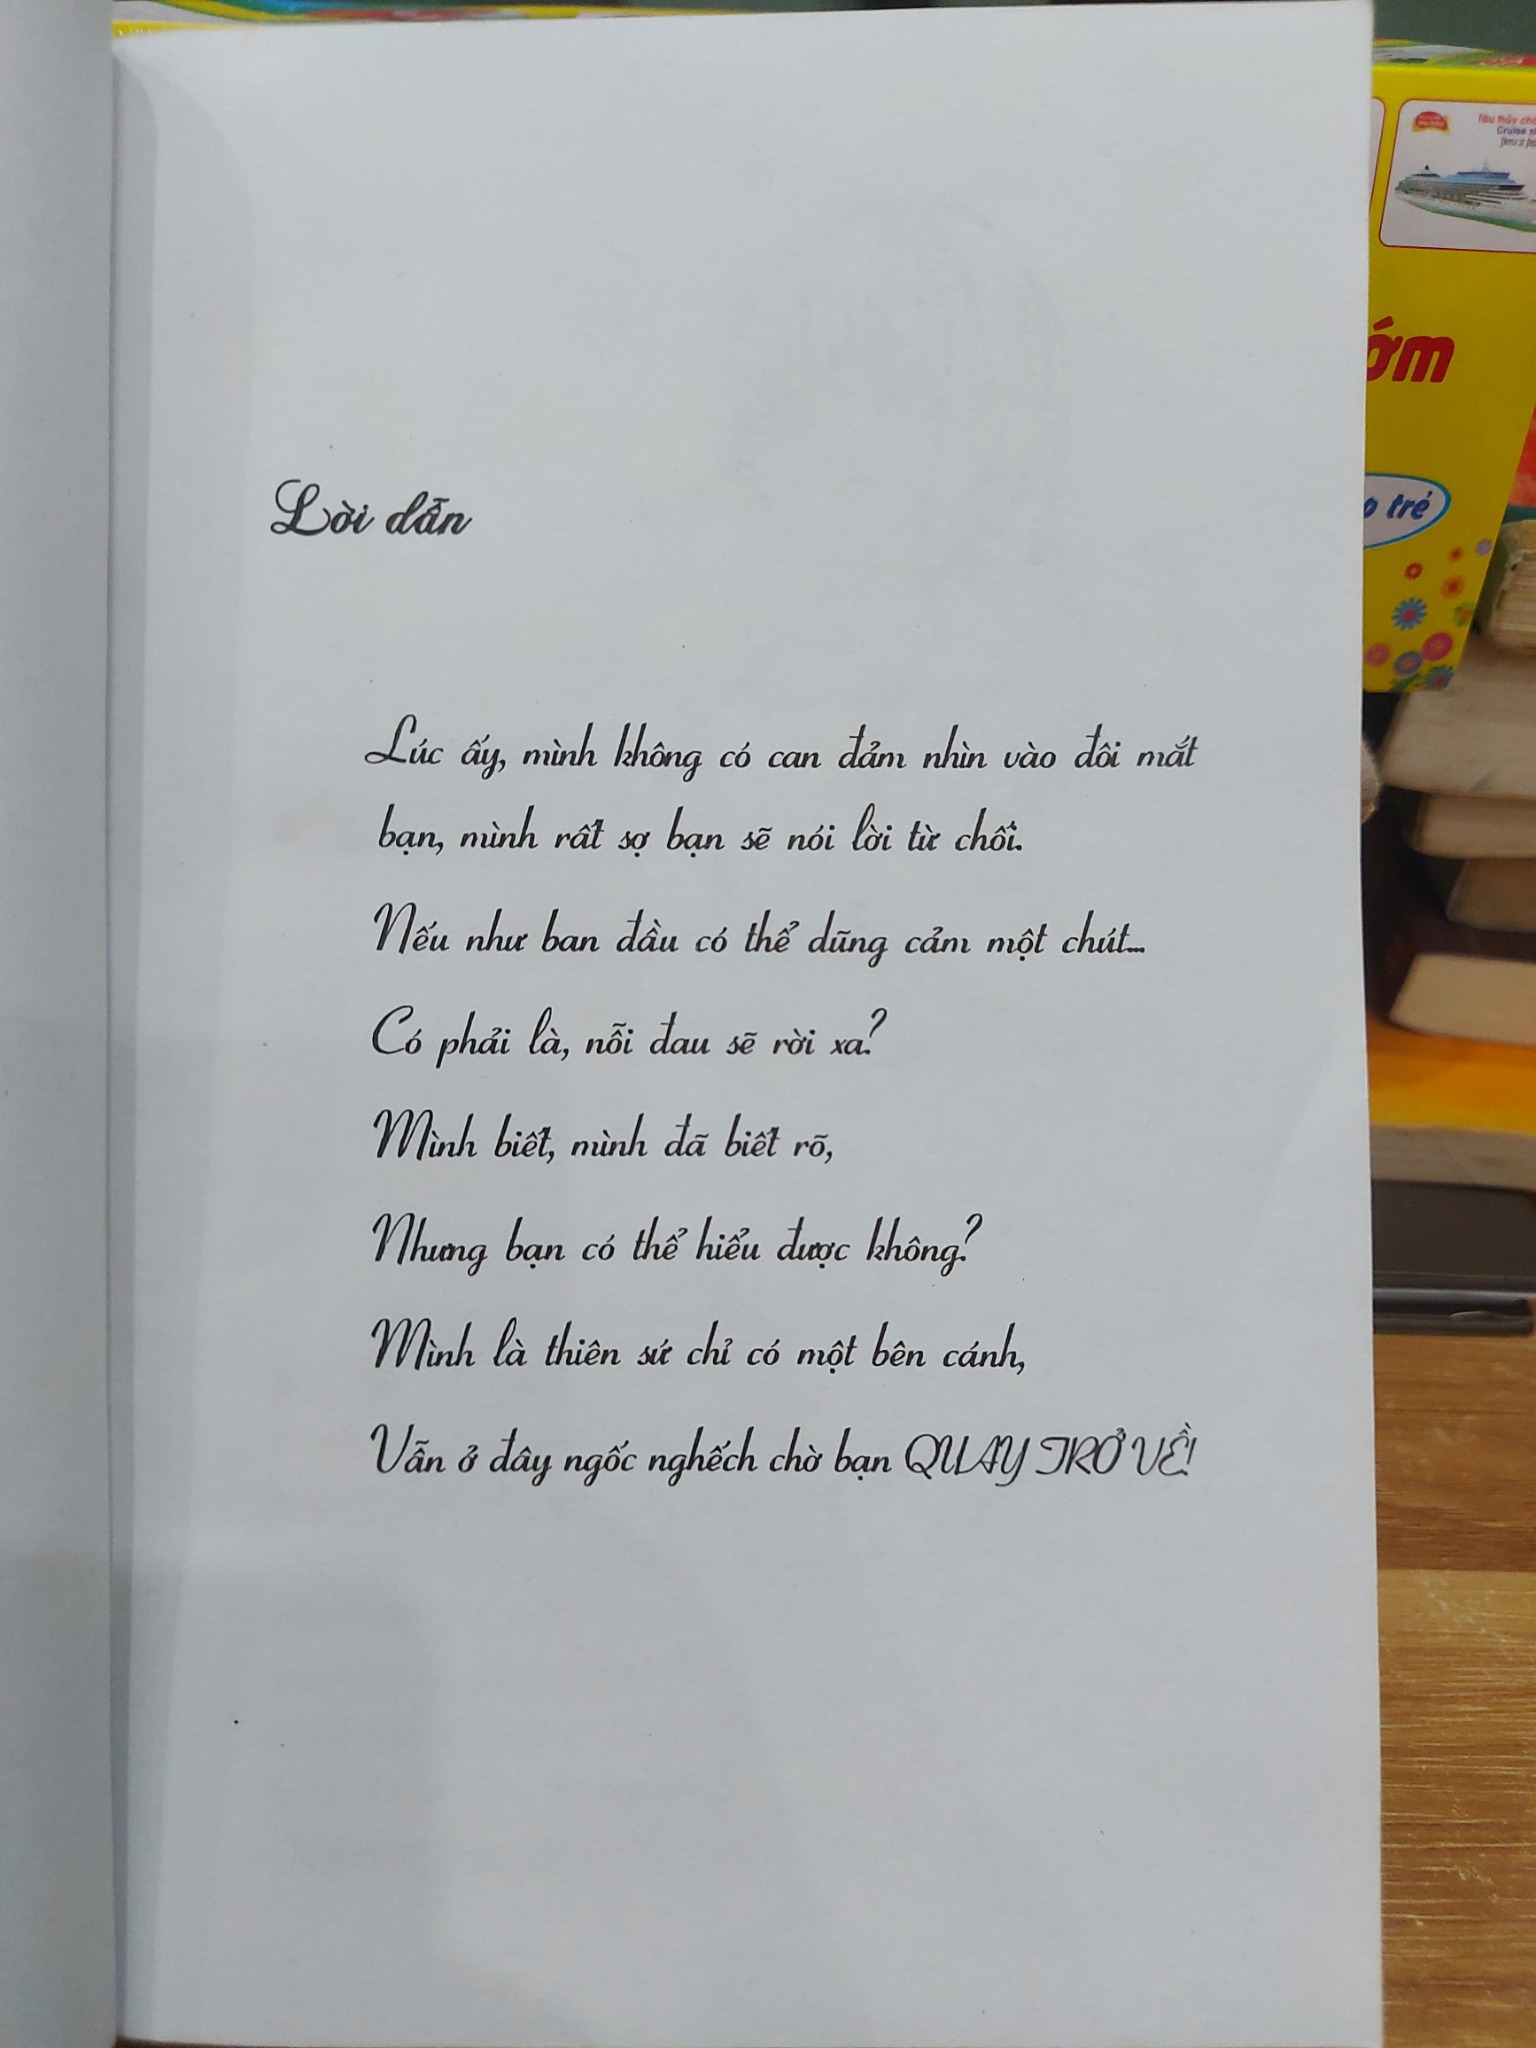 Lời dẫn
Lúc ấy, mình không có can đảm nhìn vào đôi mắt
bạn, mình rất sợ bạn sẽ nói lời từ chối.
Nếu như ban đầu có thể dũng cảm một chút...
Có phải là, nỗi đau sẽ rời xa?
Mình biết, mình đã biết rõ,
Nhưng bạn có thể hiểu được không?
Mình là thiên sứ chỉ có một bên cánh,
Vẫn ở đây ngốc nghếch chờ bạn QUAY TRỞ VỀ!
Tàu thủy
Cruise
ớm
trẻ